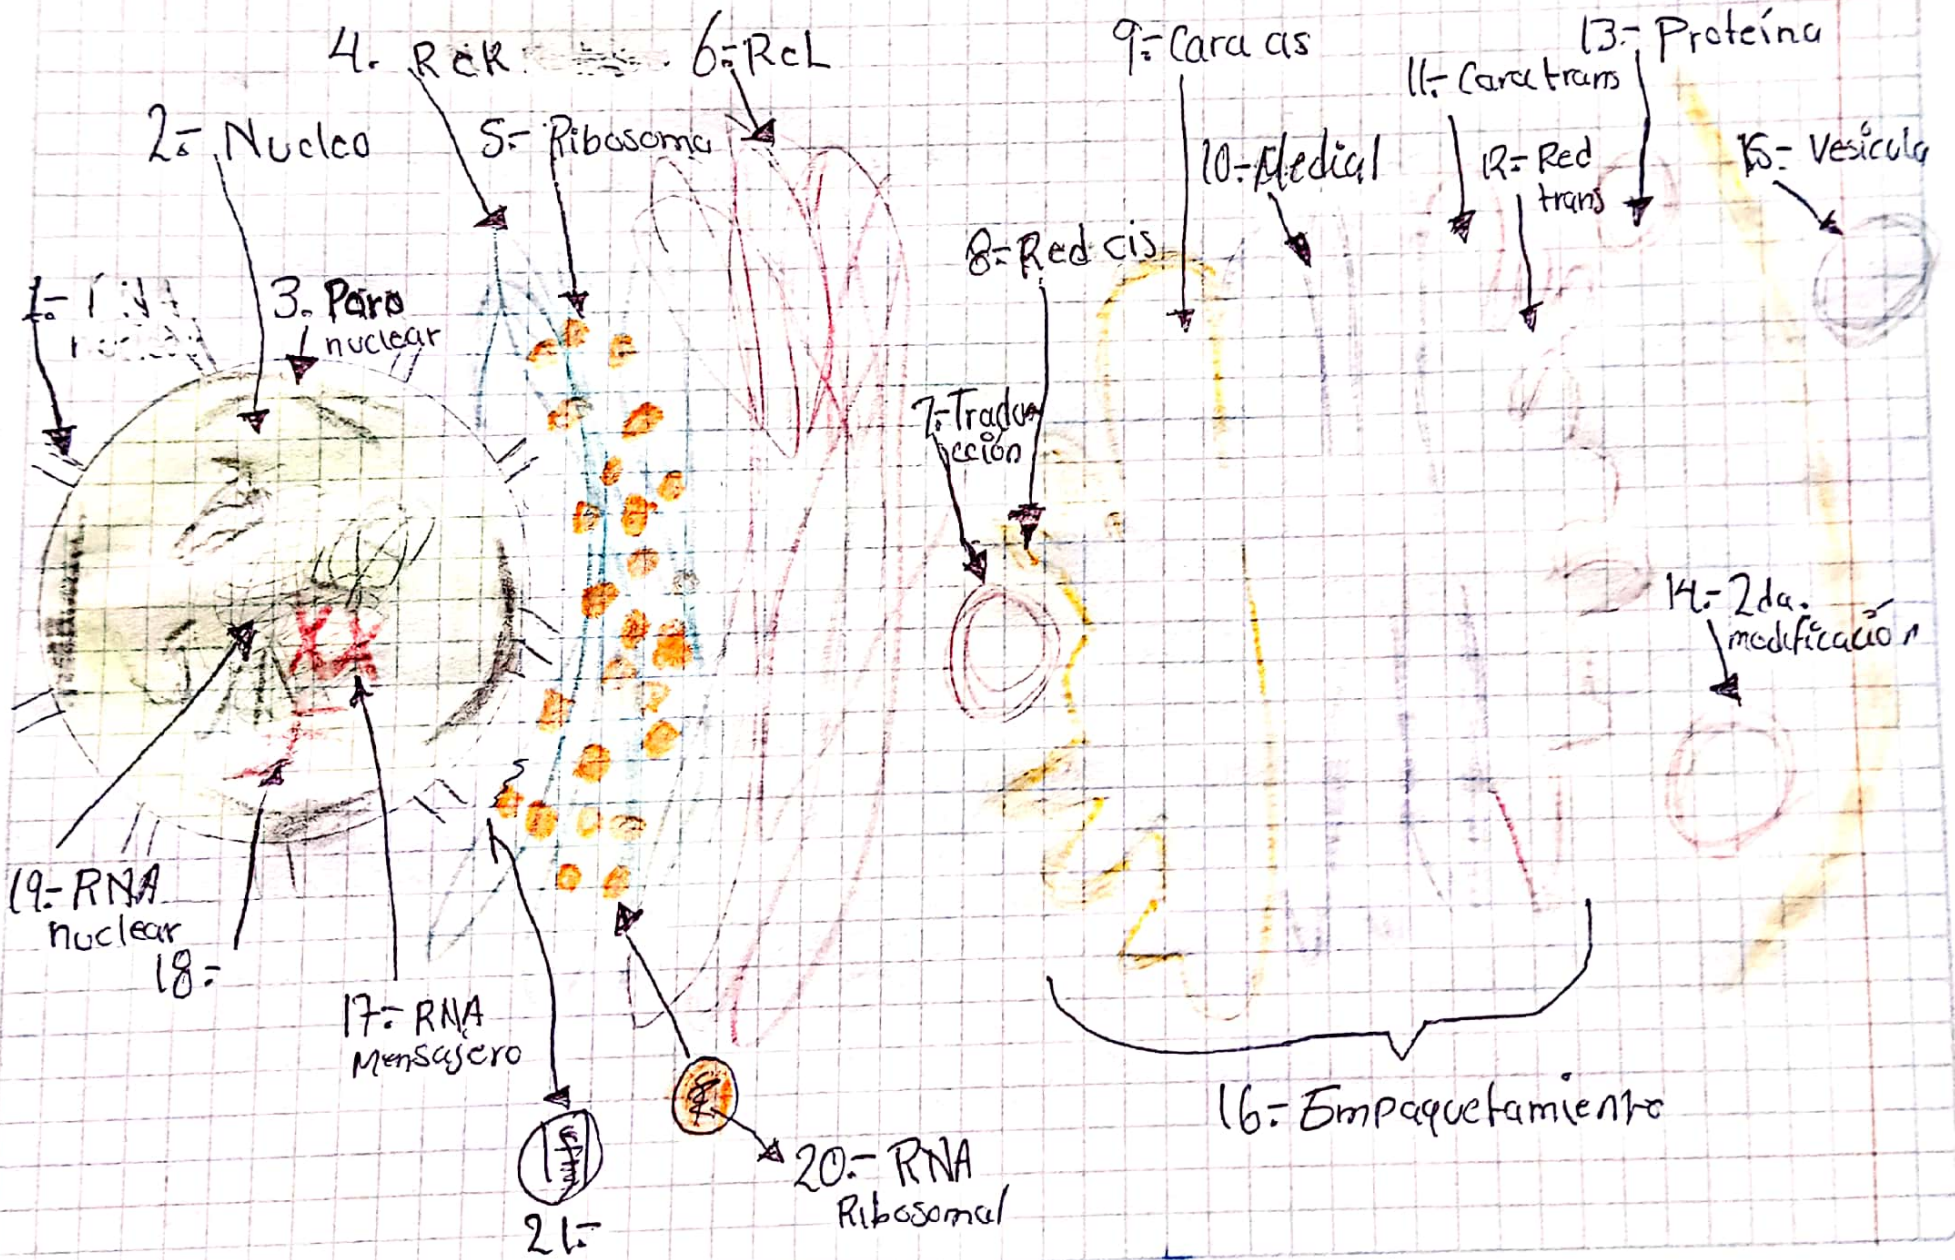 4. ReR
6.- ReL
9.- Cara cis
13.- Proteína
11.- Cara trans
2.- Nucleo
5.- Ribosoma
10.- Medial
12.- Red
trans
15.- Vesícula
8.- Red cis
1.-
3. Poro
nuclear
7.- Tradu-
cción
14.- 2da.
modificación
19.- RNA
nuclear
18.-
17.- RNA
Mensajero
16.- Empaquetamiento
20.- RNA
Ribosomal
21.-